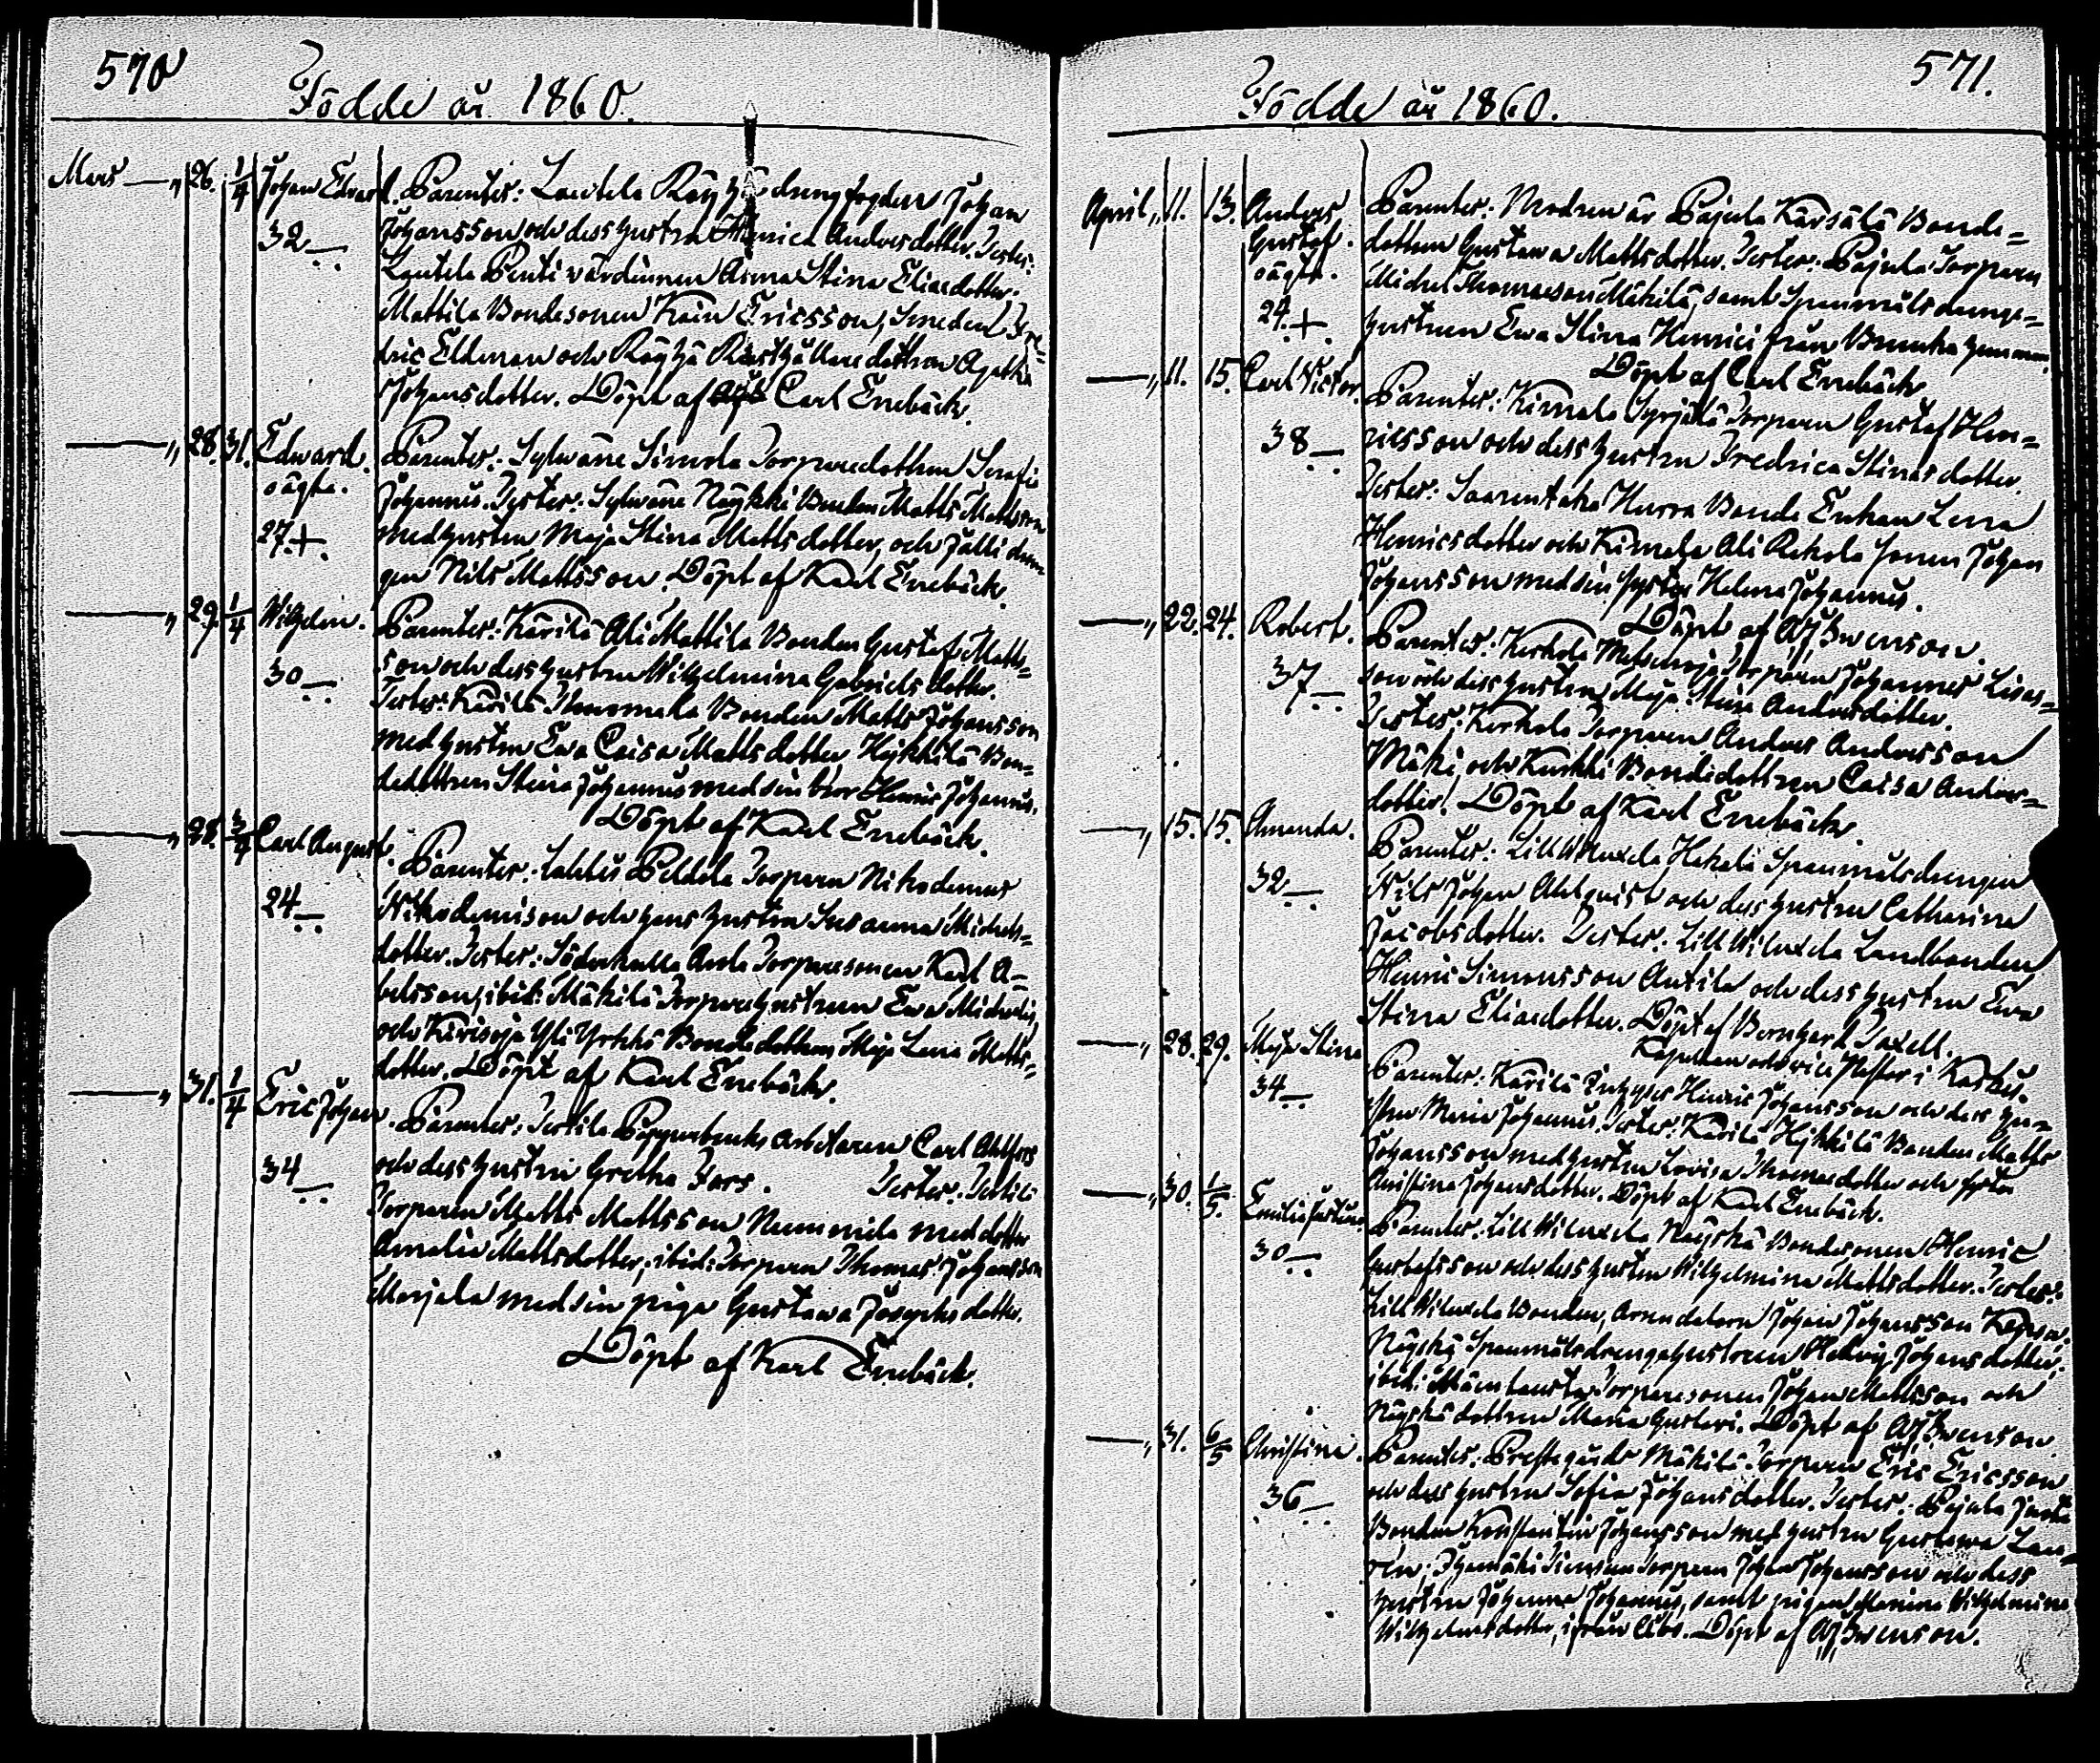 570
Födde år 1860.
Mars — „ 26. 1/4 Johan Edvard. Parenter: Lautela Räyhä drengfogden Johan
32 — Johansson och dess hustru Henrica Andersdotter. Tester:
Lautela Penti värdinnan Anna Stina Eliaedotter,
Mattila Bondesonen Karin Ericsson, Smeden Fre=
dric Eldman och Räyhä Rusthållare dottren Agatha
Johansdotter. Döpt af Carl Enebäck.
— „ 28. 31. Edward. Parenter: Sylväne Simola Torparedottren Serafia
oägta. Johannus. Tester: Sylväne Näykki Bonden Matts Mattsson
27. + med hustru Maja Stina Mattsdotter, och Jalli dren
gen Nils Mattsson. Döpt af Karl Enebäck.
— „ 29. 1/4 Wilhelm. Parenter: Kärilä Ali Mattila Bonden Gustaf Matts=
30 — son och dess hustru Wilhelmina Gabriels dotter.
Tester: Kärilä Bonden Matts Johansson
med hustru Ewa Caisa Mattsdotter, Hykkilä Bon=
dedottren Stina Johannus med sin bror Henric Johannus.
Döpt af Karl Enebäck.
— „ 28. 3/4 Carl August. Parenter: Lahtis Peldola Torparen Nikodemus
24 — Nikodemison och hans hustru Susanna Michels=
dotter. Tester: Torparesonen Karl A=
belsson, ibid: Mäkilä Torparehustrun Ewa Michelis,
och Yli Yrkkö Bondedottren Maja Lena Matts=
dotter. Döpt af Karl Enebäck.
— „ 31. 1/4 Eric Johan. Parenter: Tertila Pappersbruks Arbetaren Carl Ahlfors
34 — och dess hustru Gretha Fors. Tester: Tertila
Torparen Matts Mattsson Nummila med dotter
Amalia Mattsdotter; ibid: Torparen Thomas Johansson
Marjala med sin piga Gustawa Josephsdotter.
Döpt af Karl Enebäck.
571.
Födde år 1860.
April „ 11. 13. Anders Parenter: Modren är Pajula Karsälä Bonde=
Gustaf. dottren Gustawa Mattsdotter. Tester: Pajula Torparen
oägta. Michel Thomasson Mäkilä, samt Spanmåls drenge=
24. + hustrun Ewa Stina Henrici från Brunka hemman.
Döpt af Carl Enebäck
— „ 11. 15. Carl Victor. Parenter: Kimala Syrjälä Torparen Gustaf Hen=
38 — ricsson och dess hustru Fredrica Stinas dotter.
Tester: Hurra Bonde Enkan Lena
Henricsdotter och Kimala Ali Rekola Sonen Johan
Johansson med sin syster Helena Johannus.
Döpt af Swenson.
— „ 22. 24. Robert. Parenter: Kerkola Torparen Johannes Lisas=
37 — son och dess hustru Maja Stina Andersdotter.
Tester: Kerkola Torparen Anders Andersson
Mäki, och Kurkki Bondedottren Caisa Anders=
dotter. Döpt af Karl Enebäck.
— „ 15. 15. Amanda. Parenter: Lill Hakala Spanmålsdrengen
32 — Nils Johan Ahlqvist och dess hustru Catharina
Jacobsdotter. Tester: Lill Landbonden
Henric Simonsson Antila och dess hustru Ewa
Stina Eliaedotter. Döpt af Bernhard Taxell.
Kapellan och vice Pastor i Karkus.
— „ 28. 29. Maja Stina Parenter: Kärilä Inhyses Henric Johansson och dess hu=
34 — stru Maria Johannus. Tester: Kärilä Hykkilä Bonden Matts
Johansson med hustru Lovisa Thomasdotter och syster
Christina Johansdotter. Döpt af Karl Enebäck.
— „ 30. 1/5. Emilia Justina Parenter: Lill Näyskä Bondesonen Henric
30 — Gustafsson och dess hustru Wilhelmina Mattsdotter. Tester:
Lill Bonden, Arrendatorn Johan Johansson
Näyskä Spanmålsdrengehustrun Hedvig Johansdotter,
ibid: Torparesonen Johan Mattsson och
Näyskä dottren Maria Gustavi. Döpt af Swenson
— „ 31. 6/5 Christina. Parenter: Prestegårds Mäkilä Torparen Eric Ericsson
36 — och dess hustru Sofia Johansdotter. Tester: Pajula
Bonden Konstantin Johansson med hustru Gustawa
Torparen Johan Johansson och dess
hustru Johanna Johannus, samt pigan Wilhelmina
Wilhelmsdotter, ifrån Åbo. Döpt af Swenson.